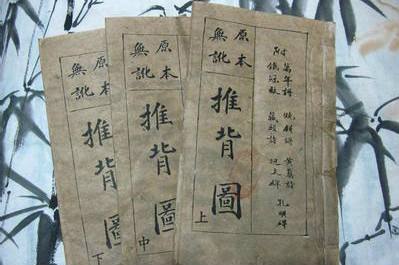 燒餅 黃蘗詩 孔明碑
附 鐵冠 藏頭詩
原本
無訛
推背圖
上
原本
無訛
推背圖
中
原本
無訛
推背圖
下